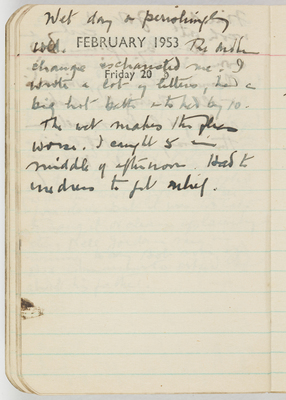 Wet day & perishingly
cold. The sudden
FEBRUARY 1953
change exhausted me. I
Friday 20
wrote a lot of letters, had a
big hot bath into bed by 10.
The wet makes the fleas
worse. I caught 5 in
middle of afternoon. Had to
undress to get relief.